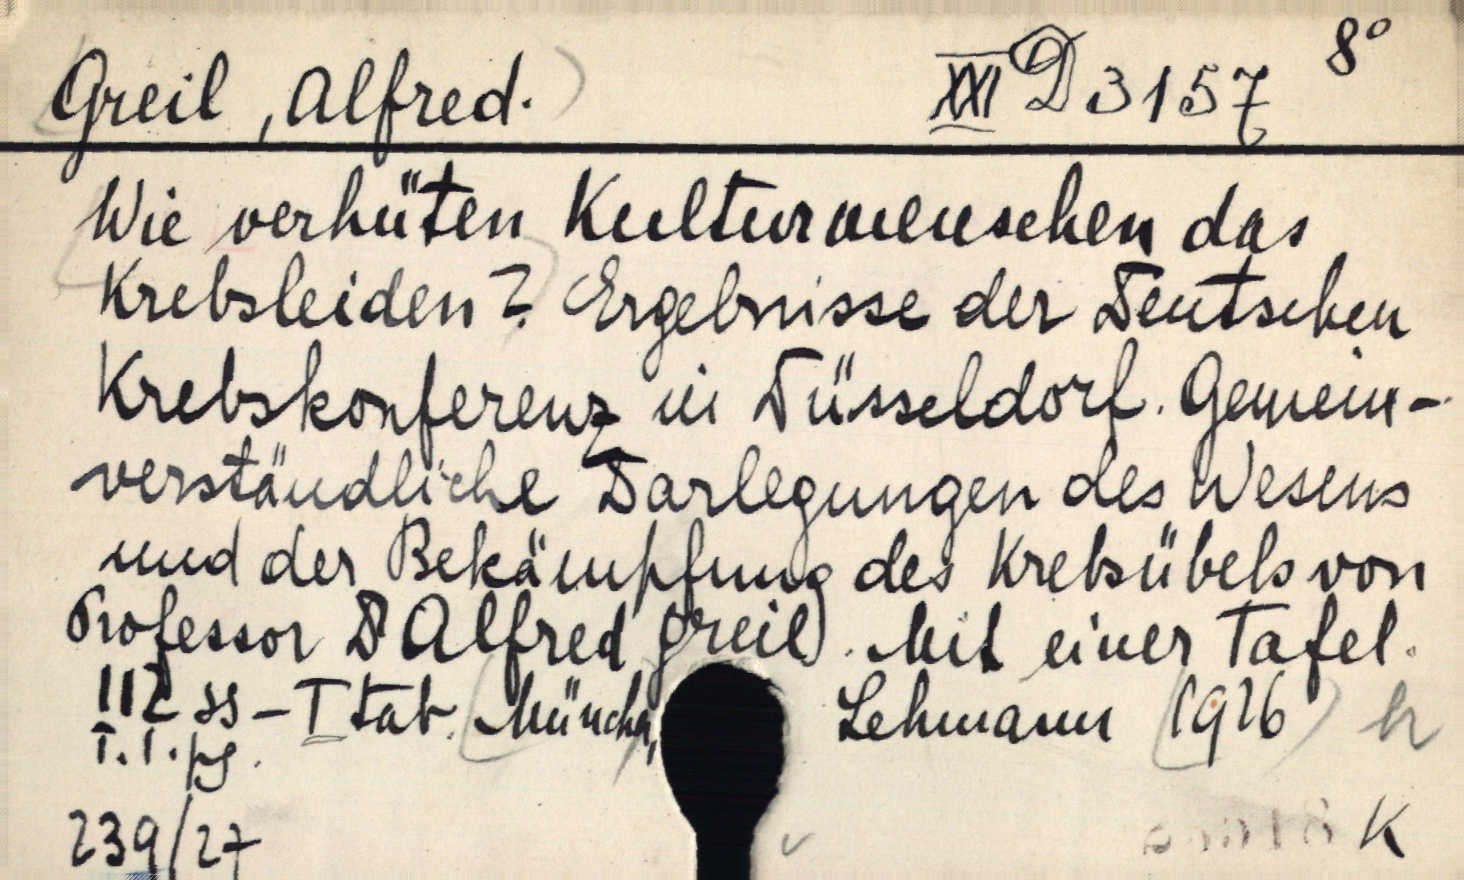 Greil, Alfred. XXI D 3157 8°
Wie verhüten Kulturmenschen das
Krebsleiden? Ergebnisse der Deutschen
Krebskonferenz in Düsseldorf. Gemein-
verständliche Darlegungen des Wesens
und der Bekämpfung des Krebsübels von
Professor D Alfred Greil. Mit einer Tafel.
112 ss - I tab. München, Lehmann 1926 h
T. I. pg.
239/27 K